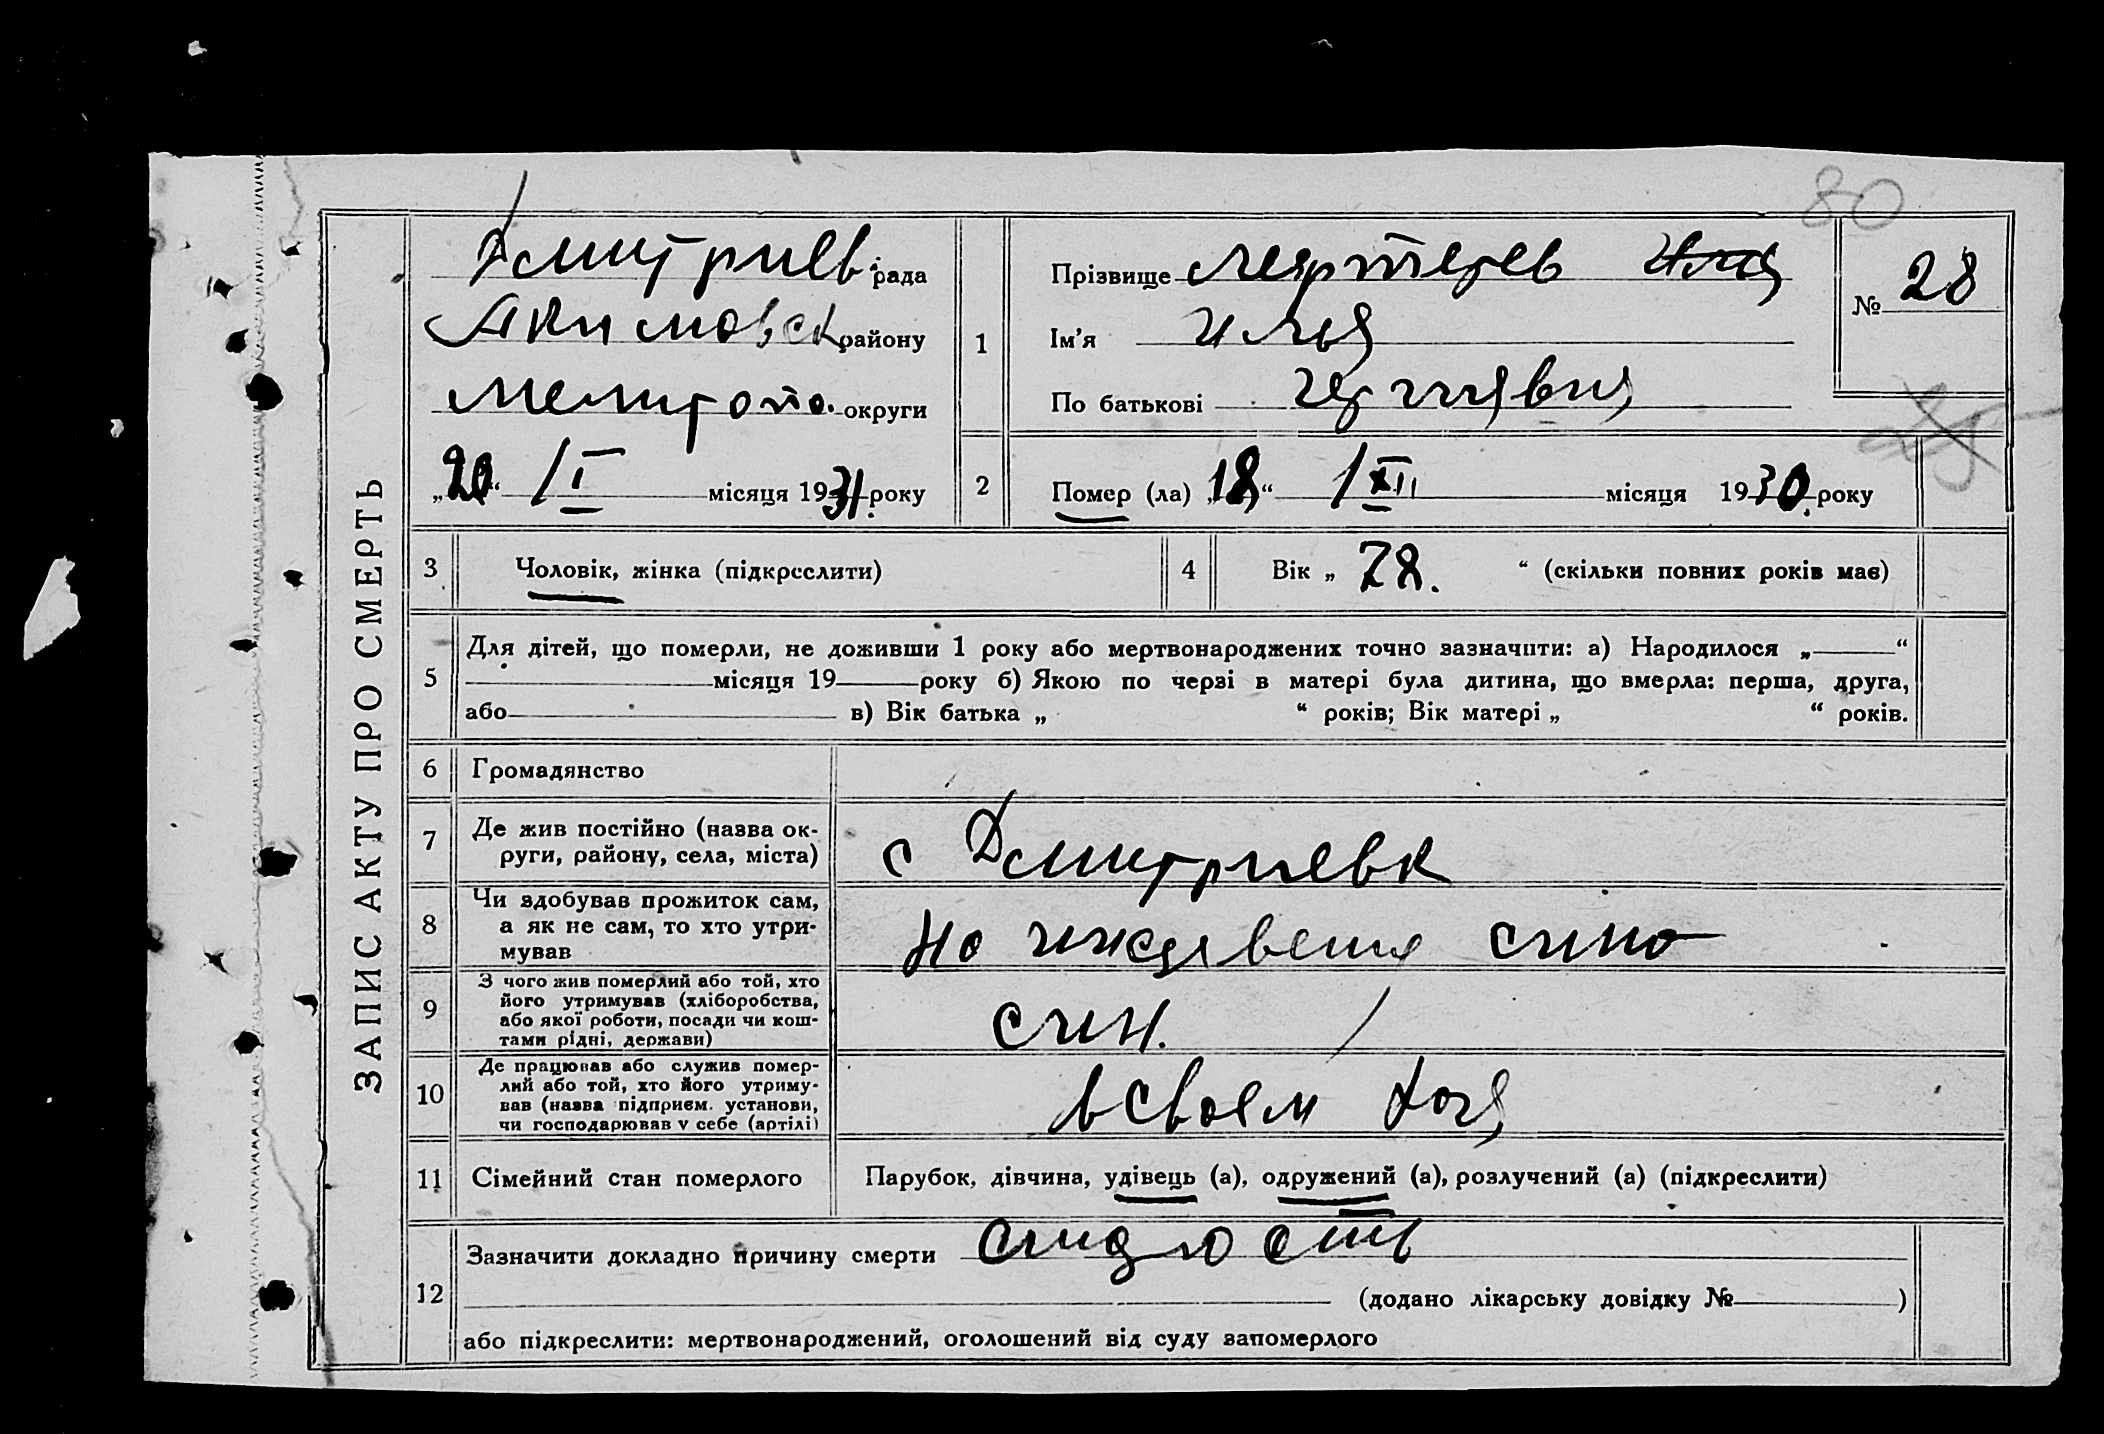 80
ЗАПИС АКТУ ПРО СМЕРТЬ
Дмитриев. рада
Акимовск району
Мелитопо. округи
„20“ /I місяця 1931. року
1
Прізвище
Ім’я Илья
По батькові
№ 28
2
Помер (ла) „18“ /XII місяця 1930. року
3
Чоловік, жінка (підкреслити)
4
Вік „ 78. “ (скільки повних років має)
5
Для дітей, що померли, не доживши 1 року або мертвонароджених точно зазначити: а) Народилося „ “
місяця 19 року б) Якою по черзі в матері була дитина, що вмерла: перша, друга,
або в) Вік батька „ “ років; Вік матері „ “ років.
6
Громадянство
7
Де жив постійно (назва ок-
руги, району, села, міста)
с Дмитриевк
8
Чи здобував прожиток сам,
а як не сам, то хто утри-
мував
На иждевении сина
9
З чого жив померлий або той, хто
його утримував (хліборобства,
або якої роботи, посади чи кош-
тами рідні, держави)
10
Де працював або служив помер-
лий або той, хто його утриму-
вав (назва підприєм. установи,
чи господарював у себе (артілі)
в своем хозя
11
Сімейний стан померлого
Парубок, дівчина, удівець (а), одружений (а), розлучений (а) (підкреслити)
12
Зазначити докладно причину смерти
(додано лікарську довідку № )
або підкреслити: мертвонароджений, оголошений від суду запомерлого